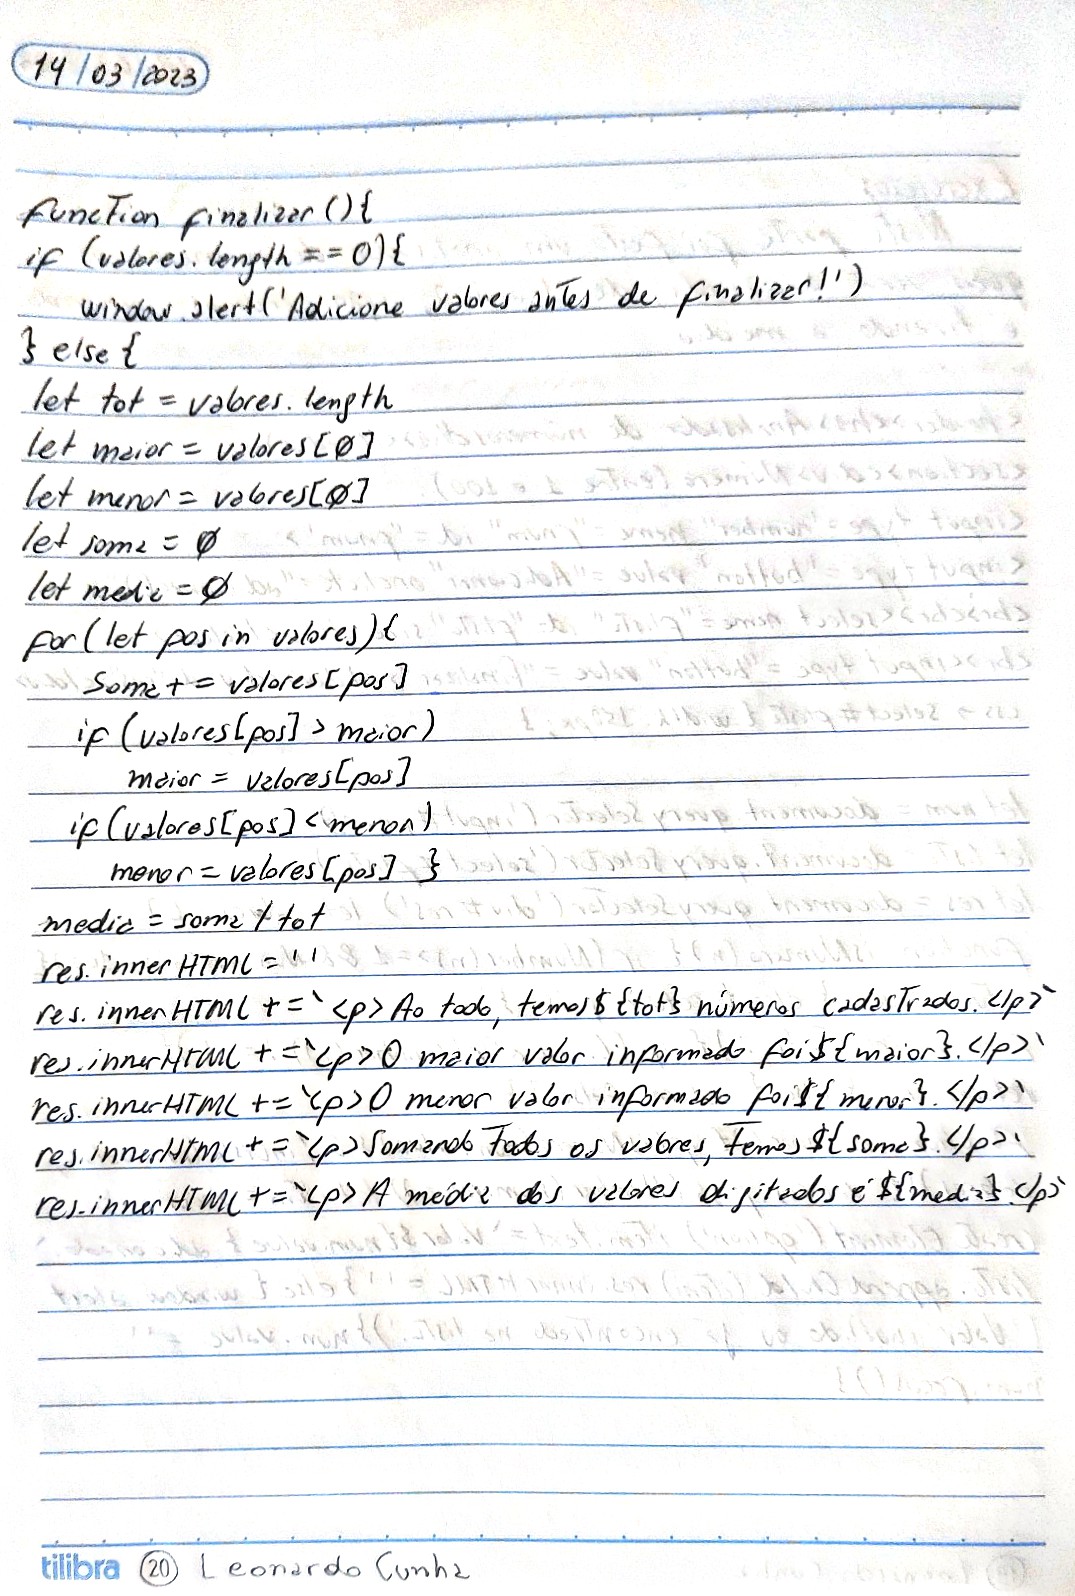 14/03/2023
function finalizar(){
if (valores.length == 0){
window.alert('Adicione valores antes de finalizar!')
} else {
let tot = valores.length
let maior = valores[0]
let menor = valores[0]
let soma = 0
let media = 0
for(let pos in valores){
Soma += valores[pos]
if (valores[pos] > maior)
maior = valores[pos]
if(valores[pos] < menor)
menor = valores[pos] }
media = soma / tot
res.innerHTML = ''
res.innerHTML += `<p> Ao todo, temos ${tot} números cadastrados.</p>`
res.innerHTML += `<p> O maior valor informado foi ${maior}.</p>`
res.innerHTML += `<p> O menor valor informado foi ${menor}.</p>`
res.innerHTML += `<p> Somando Todos os valores, Temos ${soma}.</p>`
res.innerHTML += `<p> A média dos valores digitados é ${media}.</p>`
tilibra 20 Leonardo Cunha